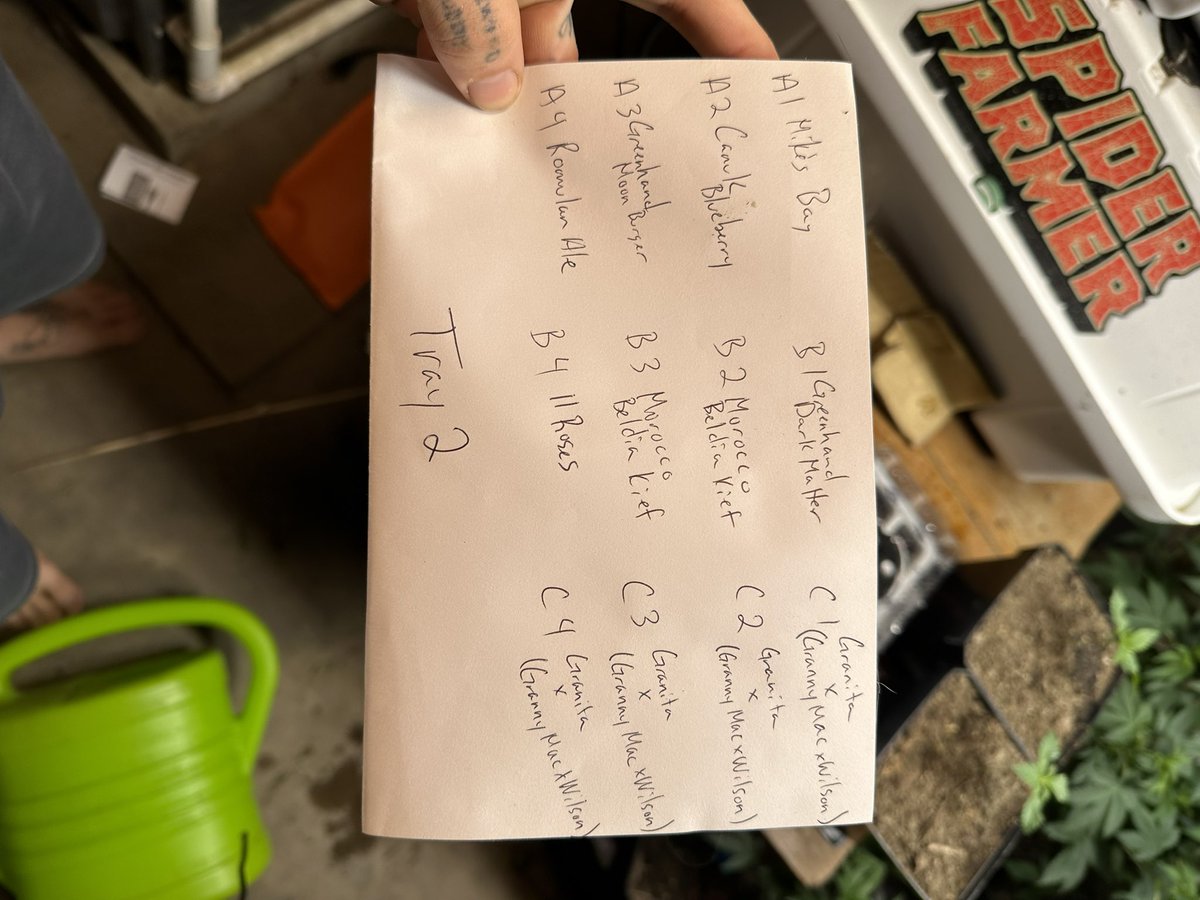 A1 Mike's Bay
B1 Greenhand
Dark Matter
C1 Granita
x
(Granny Mac x Wilson)
A2 Canuk
Blueberry
B2 Morocco
Beldia Kief
C2 Granita
x
(Granny Mac x Wilson)
A3 Greenhand
Moon Burger
B3 Morocco
Beldia Kief
C3 Granita
x
(Granny Mac x Wilson)
A4 Romulan Ale
B4 11 Roses
C4 Granita
x
(Granny Mac x Wilson)
Tray 2
SPIDER
FARMER